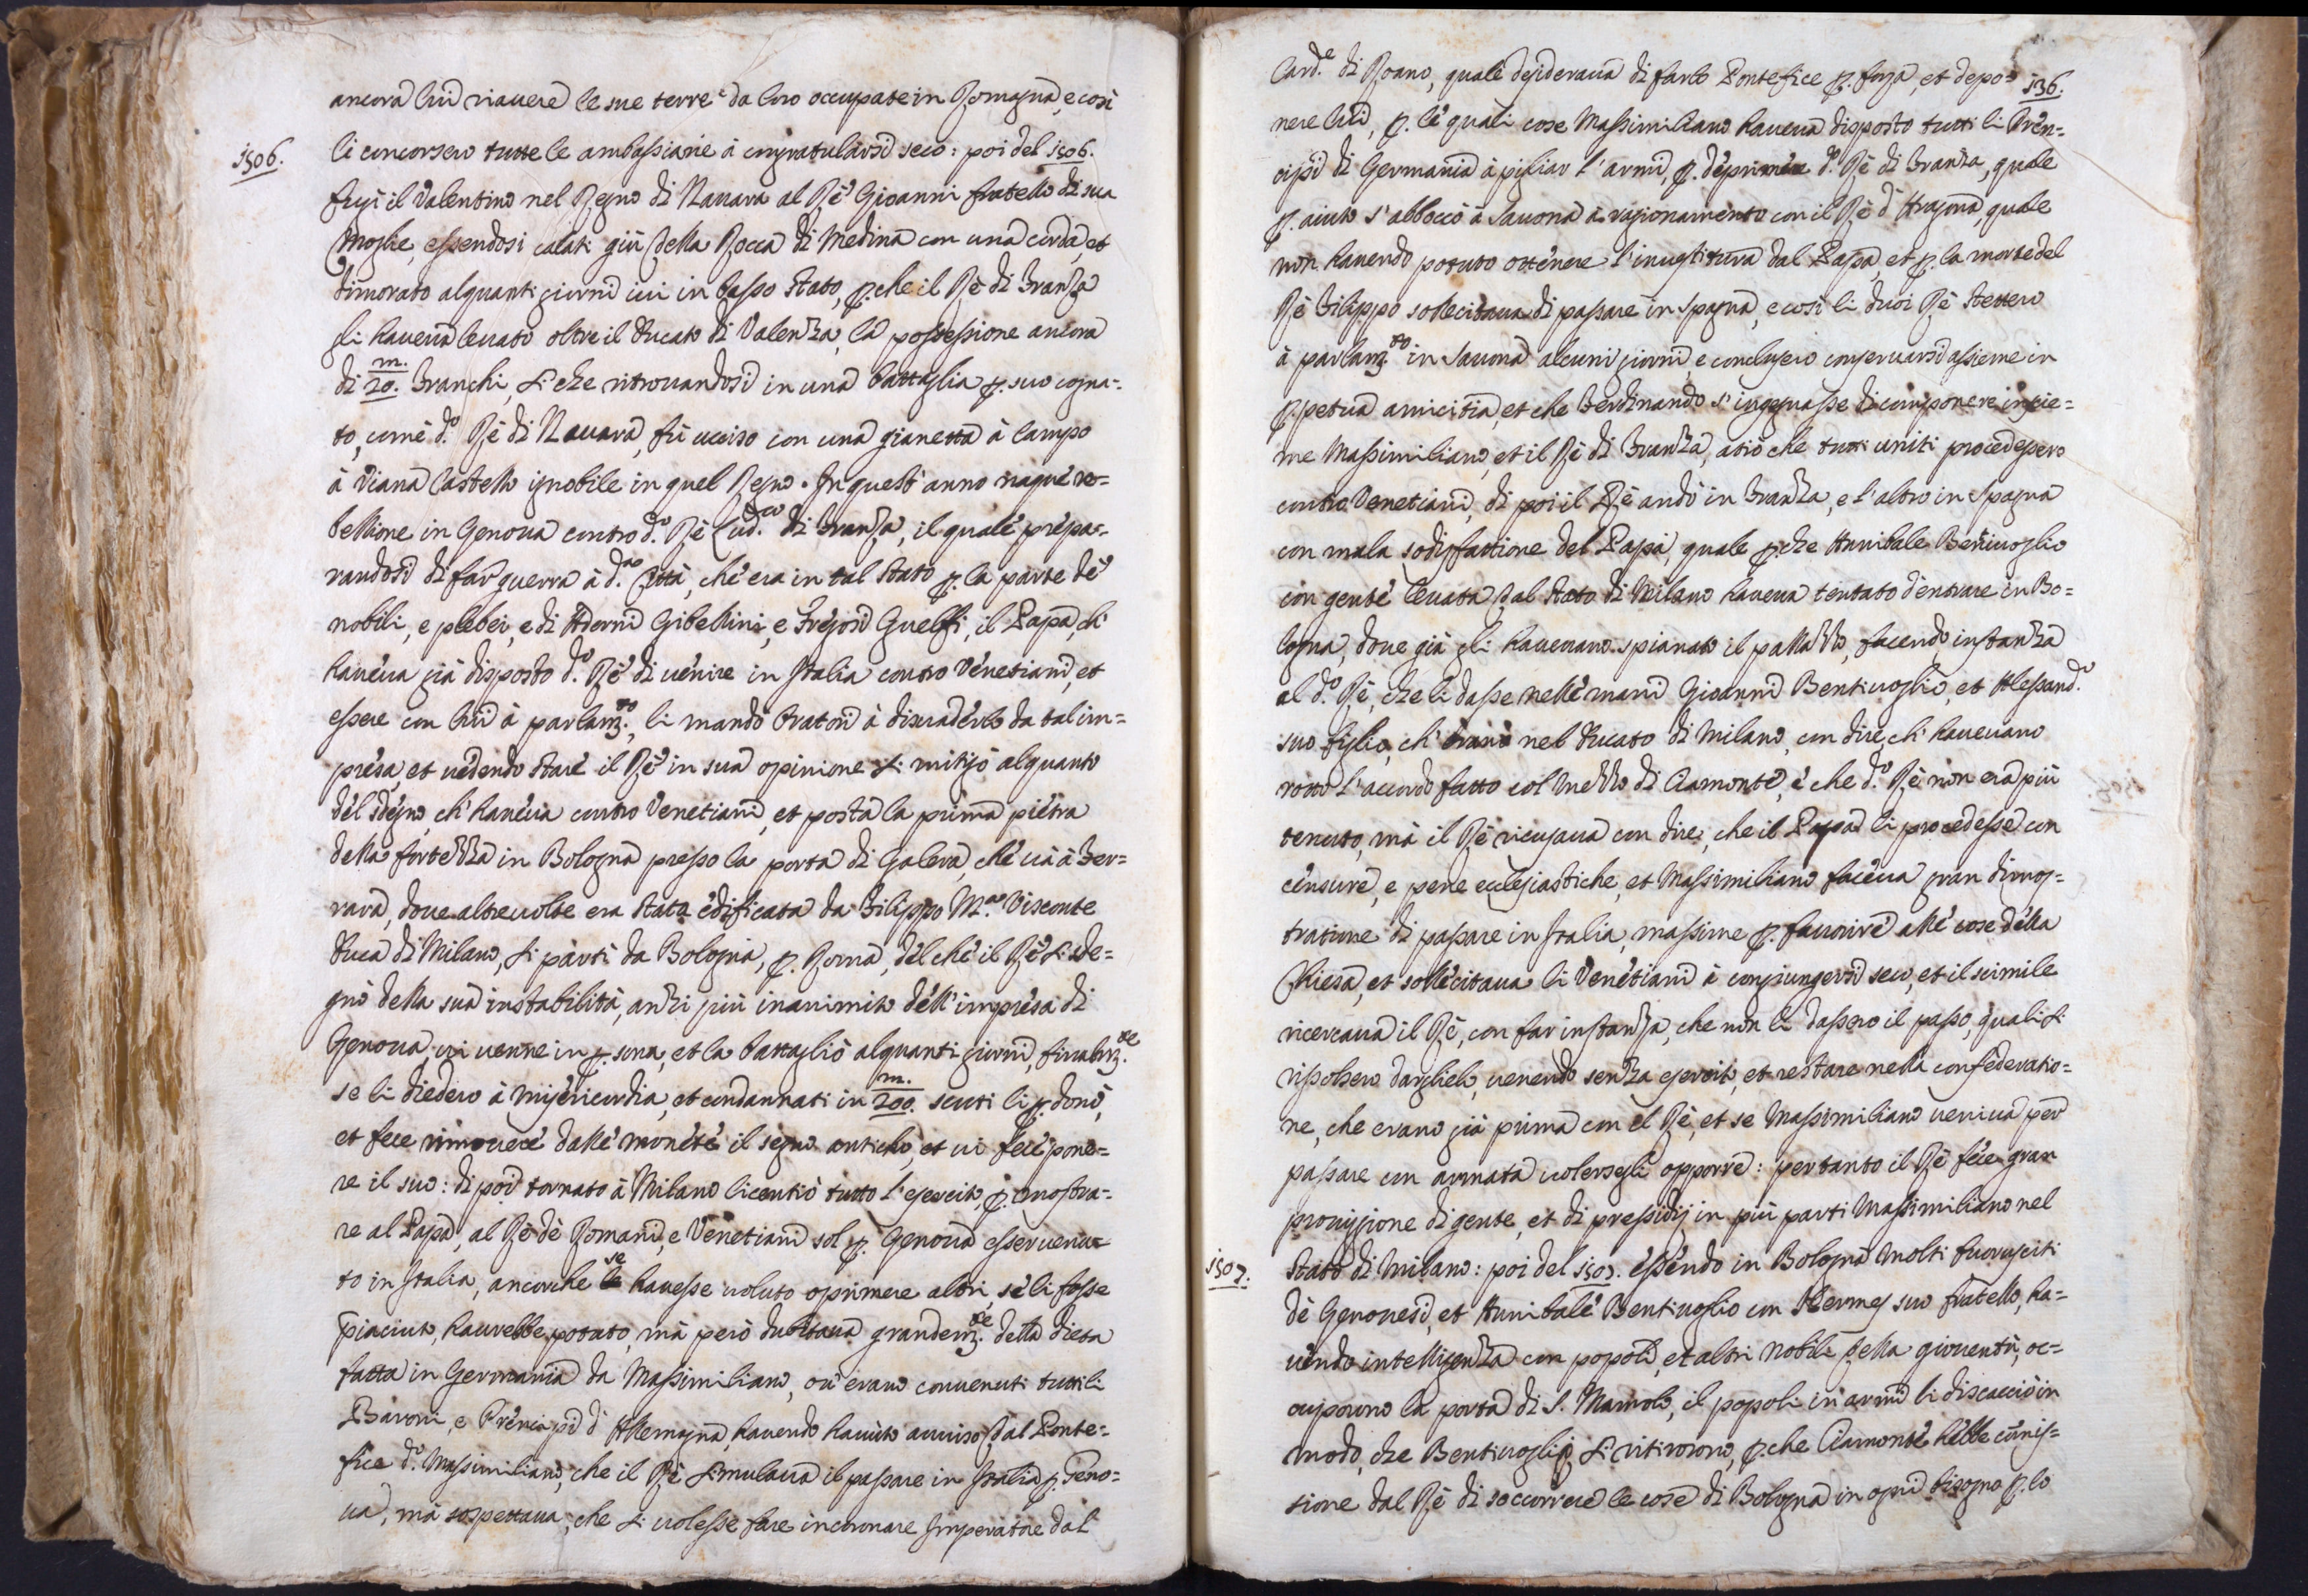 ancora lui riavere le sue terre da loro occupate in Romagna, e così
1506.
li concorsero tutte le ambassiarie à congratularsi seco: poi del 1506.
fugì il Valentino nel Regno di Navara al Rè Gioanni fratello di sua
Moglie, essendosi calati giù della Rocca di Medina con una corda, et
dimorato alquanti giorni ivi in basso stato, p. che il Rè di Franza
gli haveva levato oltre il Ducato di Valenza, la possessione ancora
di 20.m. Franchi, si che ritrovandosi in una battaglia p. suo cogna=
to, come d.o Rè di Navara, fù ucciso con una gianetta à campo
à Viana Castello ignobile in quel Regno. In quest'anno naque re=
bellione in Genova contro d.o Rè Lud.co di Franza, il quale prepa=
randosi di far guerra à d.a Città, che era in tal stato p. la parte de
nobili, e plebei, e di Adorni Gibellini, e Fregosi Guelfi, il Papa, ch'
haveva già disposto d.o Rè di venire in Italia contro Venetiani, et
essere con lui à parlam.to, li mandò Oratori à disuaderlo da tal im=
presa, et vedendo stare il Rè in sua opinione si mitigò alquanto
del sdegno, ch' haveva contro Venetiani, et posta la prima pietra
della fortezza in Bologna presso la porta di Galera, che và à Fer=
rara, dove altre volte era stata edificata da Filippo M.a Visconte
Duca di Milano, si partì da Bologna, p. Roma, del che il Rè si sde=
gnò della sua instabilità, anzi più inanimito dell'impresa di
Genova, vi venne in p.sona, et la battagliò alquanti giorni, finalm.te
se li diedero à misericordia, et condannati in 200.m. scuti li p.donò,
et fece rimovere dalle monete il segno anticho, et vi fece pone=
re il suo: di poi tornato à Milano licentiò tutto l'esercito, p. mostra=
re al Papa, al Rè dè Romani, e Venetiani sol p. Genova esser venu=
to in Italia, ancorche se havesse voluto oprimere altri, se li fosse
piaciuto, haurebbe potuto, mà però dubitava grandem.te della dieta
fatta in Germania da Massimiliano, ov'erano convenuti tutti li
Baroni, e Prencipi d'Allemagna, havendo havuto avviso dal Ponte=
fice d.o Massimiliano, che il Rè simulava il passare in Italia p. Geno=
va, mà sospettava, che si volesse fare incoronare Imperatore dal
136.
Card.e di Roano, quale desiderava di farlo Pontefice p. forza, et depo=
nere lui, p. le quali cose Massimiliano haveva disposto tutti li Pren=
cipi di Germania à pigliar l'armi, p. deprimere d.o Rè di Franza, quale
p. aiuto s'abboccò à Savona à ragionamento con il Rè d'Aragona, quale
non havendo potuto ottenere l'investitura dal Papa, et p. la morte del
Rè Filippo sollecitava di passare in Spagna, e così li duoi Rè stettero
à parlam.to in Savona alcuni giorni, e conclusero conservarsi assieme in
p.petua amicitia, et che Ferdinando s'ingegnasse di componere insie=
me Massimiliano, et il Rè di Franza, atiò che tutti uniti procedessero
contro Venetiani, di poi il Rè andò in Franza, e l'altro in Spagna
con mala sodisfattione del Papa, quale p.che Annibale Bentivoglio
con gente levata dal stato di Milano haveva tentato d'entrare in Bo=
logna, dove già gli havevano spianato il palazzo, facendo instanza
al d.o Rè, che li dasse nelle mani Gioanni Bentivoglio, et Alessand.o
suo figlio, ch'erano nel Ducato di Milano, con dire, ch' havevano
rotto l'accordo fatto col mezzo di Ciamonte, e che d.o Rè non era più
tenuto, mà il Rè ricusava con dire, che il Papa li procedesse con
censure, e pene ecclesiastiche, et Massimiliano faceva gran dimos=
tratione di passare in Italia, massime p. favorire alle cose della
Chiesa, et sollecitava li Venetiani à congiungersi seco, et il simile
ricercava il Rè, con far instanza, che non li dassero il passo, quali si
rissolsero darglielo, venendo senza esercito, et restare nella confederatio=
ne, che erano già prima con el Rè, et se Massimiliano veniva per
passare con armata volersegli opporre: pertanto il Rè fece gran
provissione di gente, et di pressidij in più parti Massimiliano nel
1507.
stato di Milano: poi del 1507. essendo in Bologna molti fuorusciti
dè Genovesi, et Annibale Bentivoglio con Hermes suo fratello, ha=
vendo intelligenza con popoli, et altri nobili della gioventù, oc=
cuporno la porta di S. Mamolo, il popoli in armi li discacciò in
modo, che Bentivoglij si ritirorono, p.che Ciamonte hebbe comis=
sione dal Rè di soccorrere le cose di Bologna in ogni bisogno p. lo